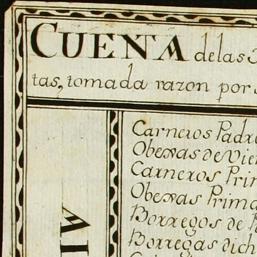 CUENA delas
tas, tomada razon por
Carneros Padre
Obexas de Vien
Carneros Prim
Obexas Prima
Borregos de
Borregas dich